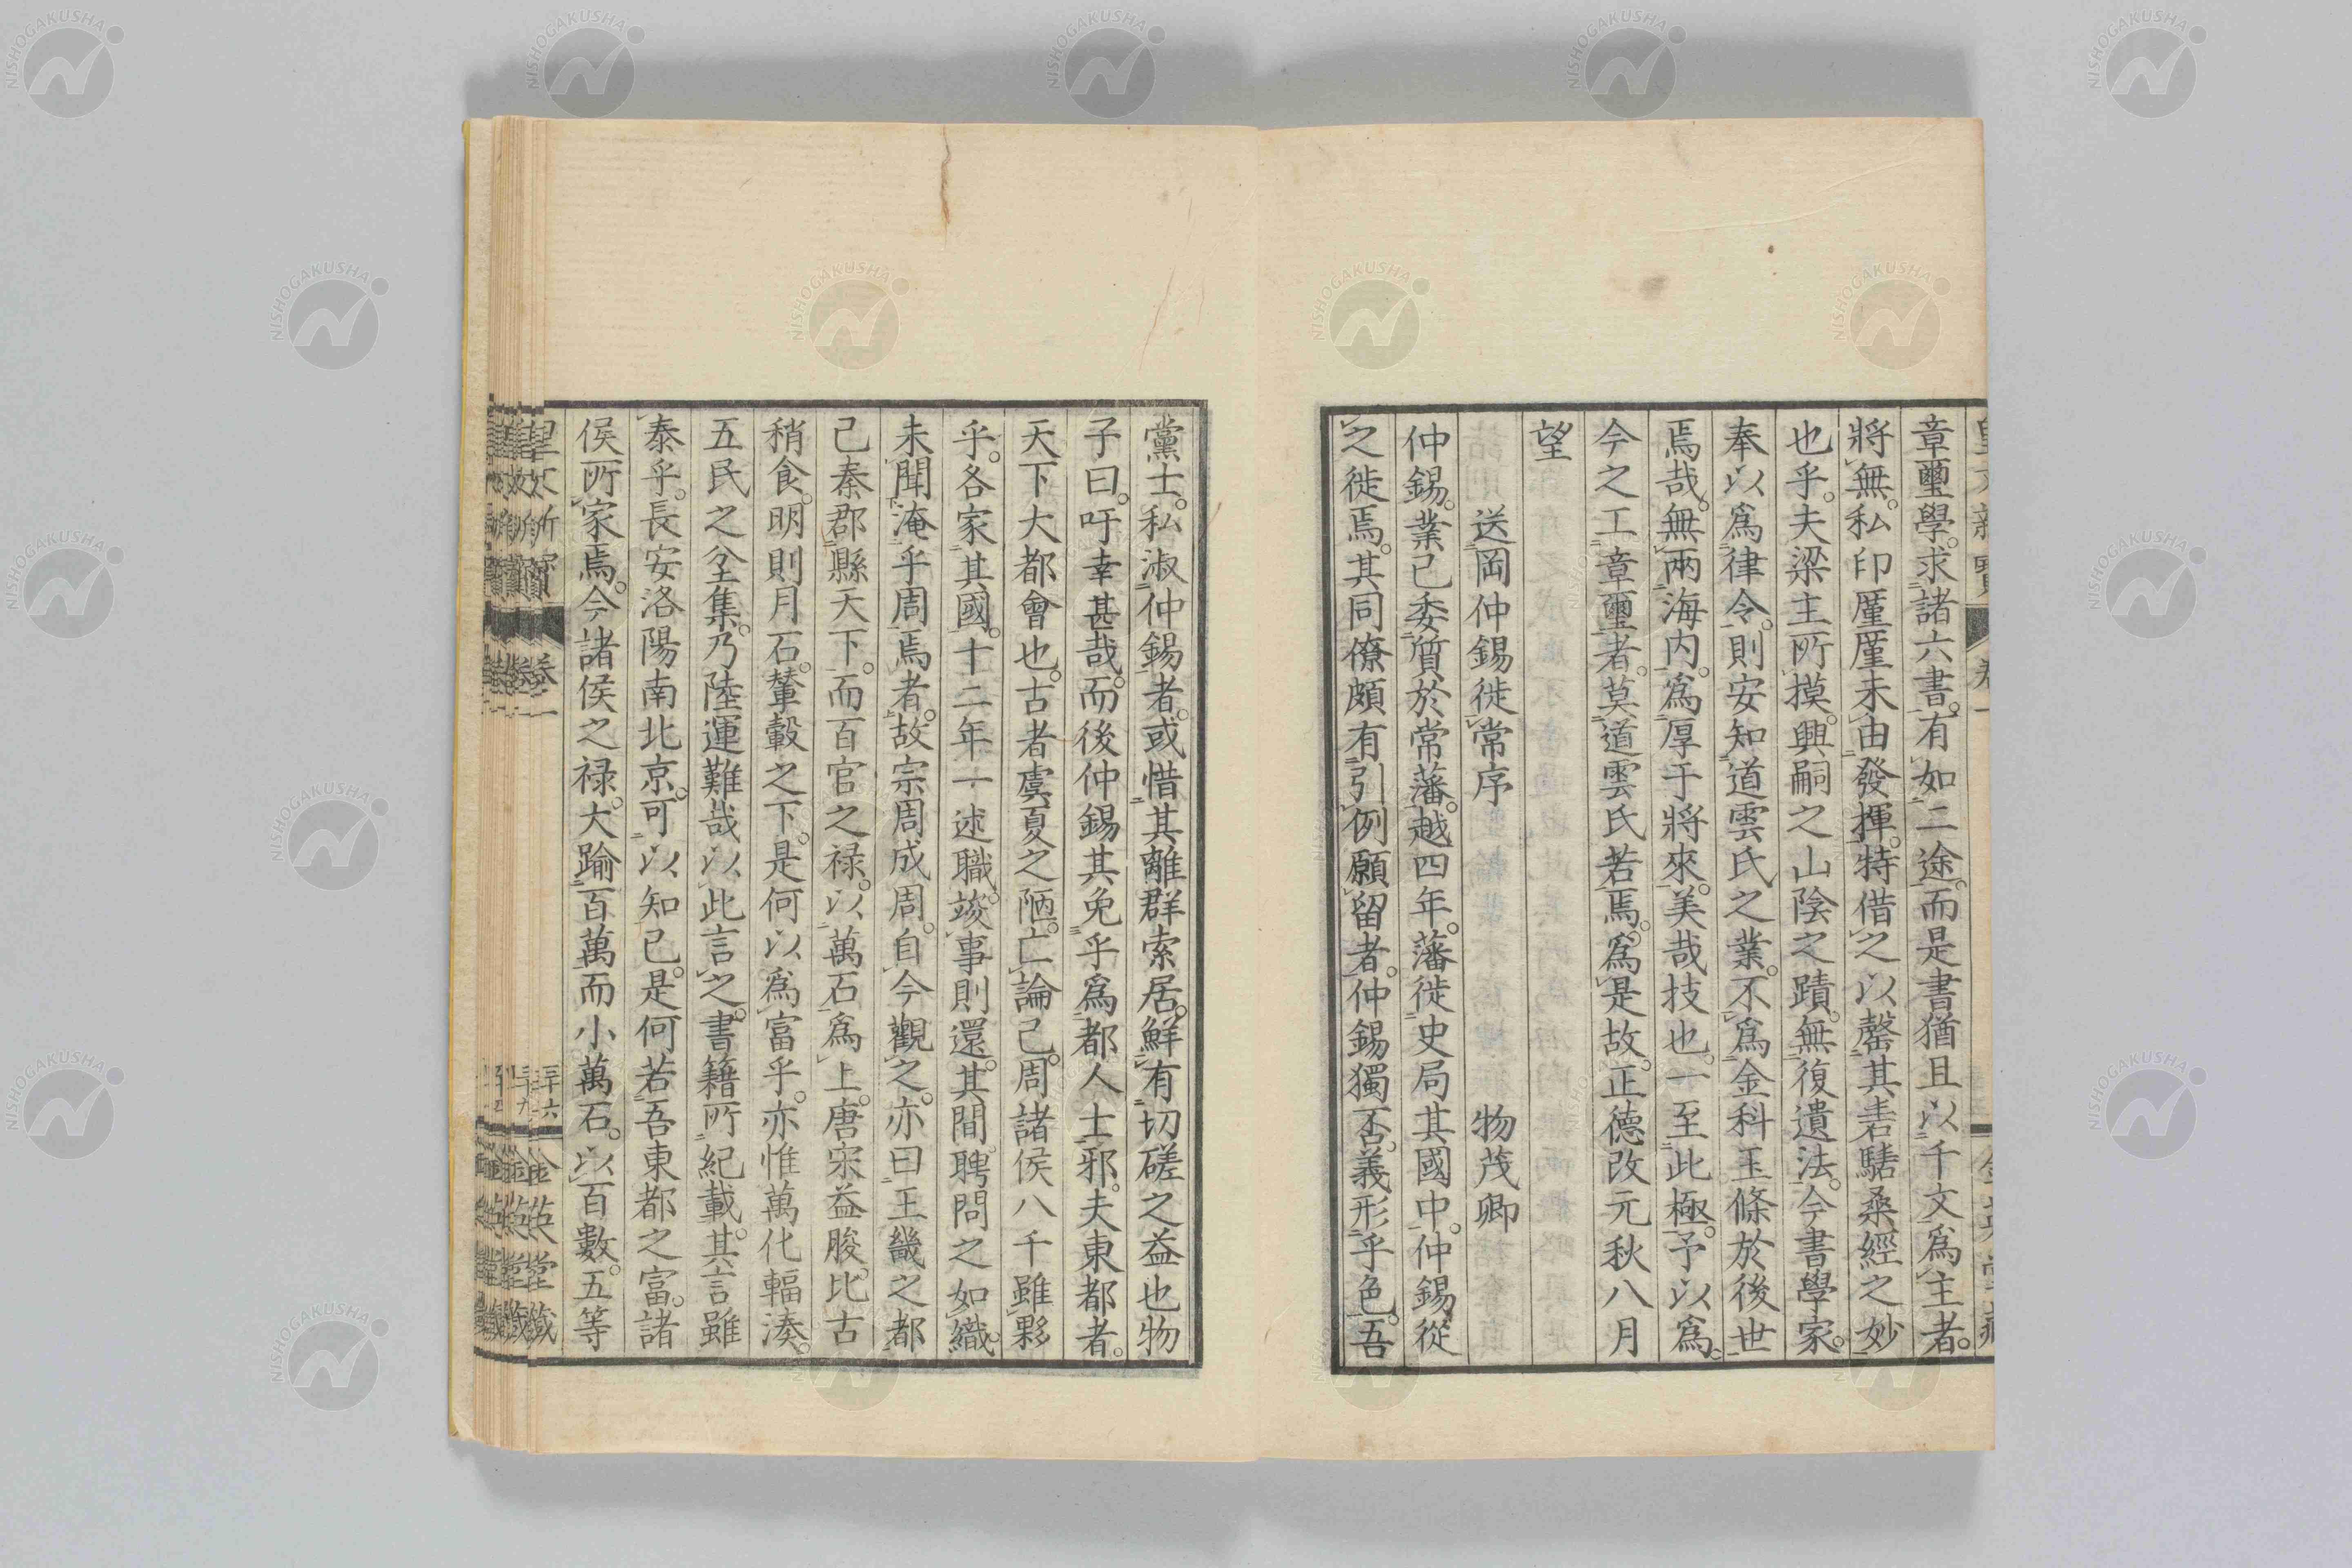 章璽學。求諸六書。有如二途。而是書猶且以千文爲主者。
將無。私印厪厪未由發揮。特借之以罄其砉騞桑經之妙
也乎。夫梁主所摸。興嗣之山陰之蹟。無復遺法。今書學家。
奉以爲律令。則安知道雲氏之業。不爲金科玉條於後世
焉哉。無兩海内。爲厚于將來。美哉技也。一至此極。予以爲。
今之工章璽者。莫道雲氏若焉。爲是故。正德改元秋八月
望
送岡仲錫徙常序 物茂卿
仲錫。業已委質於常藩。越四年。藩徙史局其國中。仲錫從
之徙焉。其同僚頗有引例願留者。仲錫獨否。義形乎色。吾
黨士。私淑仲錫者。或惜其離群索居。鮮有切磋之益也物
子曰。吁幸甚哉。而後仲錫其免乎爲都人士邪。夫東都者。
天下大都會也。古者虞夏之陋。亡論已。周諸侯八千雖夥
乎。各家其國。十二年一述職。竣事則還。其間聘問之如織。
未聞淹乎周焉者。故宗周成周。自今觀之。亦曰王畿之都
已秦郡縣天下。而百官之禄。以萬石爲上。唐宋益朘。比古
稍食。明則月石。輦轂之下。是何以爲富乎。亦惟萬化輻湊。
五民之坌集。乃陸運難哉以此言之。書籍所紀載。其言雖
泰乎。長安洛陽南北京。可以知已。是何若吾東都之富。諸
侯所家焉。今諸侯之禄。大踰百萬而小萬石。以百數。五等
皇文新寶 卷一
三十六 金英堂藏
NISHOGAKUSHA